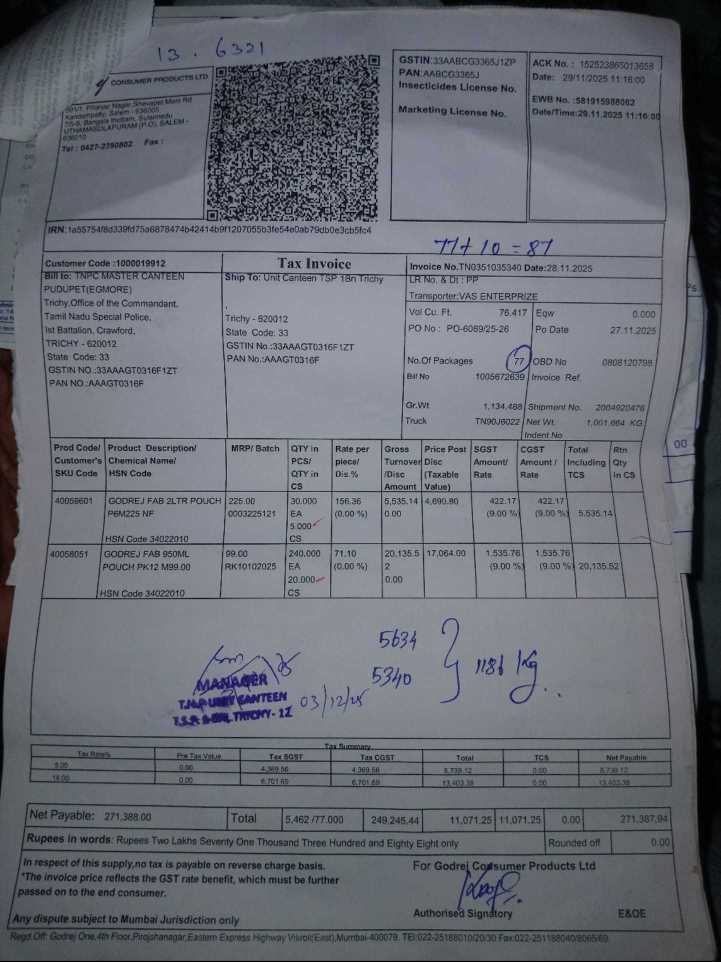 13. 6321
CONSUMER PRODUCTS LTD
Kandampatty, Salem - 636005
UTHAMASOLAPURAM (P.O), SALEM -
636010
Tel : 0427-2390802 Fax :
GSTIN:33AABCG3365J1ZP
PAN:AABCG3365J
Insecticides License No.
Marketing License No.
ACK No. : 152523865013658
Date: 29/11/2025 11:16:00
EWB No. :581915988062
Date/Time:29.11.2025 11:16:00
IRN:1a55754f8d339fd75a6878474b42414b9f1207055b3fe54e0ab79db0e3cb5fc4
77+10 = 87
Customer Code :1000019912
Bill to: TNPC MASTER CANTEEN
PUDUPET(EGMORE)
Trichy,Office of the Commandant,
Tamil Nadu Special Police,
Ist Battalion, Crawford,
TRICHY - 620012
State Code: 33
GSTIN No.:33AAAGT0316F1ZT
PAN NO.:AAAGT0316F
Tax Invoice
Ship To: Unit Canteen TSP 18n Trichy
,
Trichy - 620012
State Code: 33
GSTIN No.:33AAAGT0316F1ZT
PAN No.:AAAGT0316F
Invoice No.TN0351035340 Date:28.11.2025
LR No. & Dt : PP
Transporter:VAS ENTERPRIZE
Vol Cu. Ft. 76.417 Eqw 0.000
PO No : PO-6069/25-26 Po Date 27.11.2025
No.Of Packages 77 OBD No 0808120798
Bill No 1005672639 Invoice Ref.
Gr.Wt 1,134.488 Shipment No. 2004920476
Truck TN90J6022 Net Wt. 1,001.664 KG
Indent No
Prod Code/ Customer's SKU Code
Product Description/ Chemical Name/ HSN Code
MRP/ Batch
QTY in PCS/ QTY in CS
Rate per piece/ Dis.%
Gross Turnover /Disc Amount
Price Post Disc (Taxable Value)
SGST Amount/ Rate
CGST Amount / Rate
Total Including TCS
Rtn Qty in CS
40059601 GODREJ FAB 2LTR POUCH 225.00 30.000 156.36 5,535.14 4,690.80 422.17 422.17
P6M225 NF 0003225121 EA (0.00 %) 0.00 (9.00 %) (9.00 %) 5,535.14
5.000
HSN Code 34022010 CS
40058051 GODREJ FAB 950ML 99.00 240.000 71.10 20,135.5 17,064.00 1,535.76 1,535.76
POUCH PK12 M99.00 RK10102025 EA (0.00 %) 2 (9.00 %) (9.00 %) 20,135.52
20.000 0.00
HSN Code 34022010 CS
5634
5340
1186 Kg
MANAGER
T.N.P UNIT CANTEEN
03/12/25
TRICHY-12
Tax Summary
Tax Rate% Pre Tax Value Tax SGST Tax CGST Total TCS Net Payable
5.00 0.00 4,369.56 4,369.56 8,739.12 0.00 8,739.12
18.00 0.00 6,701.69 6,701.69 13,403.38 0.00 13,403.38
Net Payable: 271,388.00 Total 5,462 /77.000 249,245.44 11,071.25 11,071.25 0.00 271,387.94
Rupees in words: Rupees Two Lakhs Seventy One Thousand Three Hundred and Eighty Eight only Rounded off 0.00
In respect of this supply,no tax is payable on reverse charge basis.
*The invoice price reflects the GST rate benefit, which must be further
passed on to the end consumer.
Any dispute subject to Mumbai Jurisdiction only
For Godrej Consumer Products Ltd
Authorised Signatory
E&OE
Regd.Off: Godrej One,4th Floor,Pirojshanagar,Eastern Express Highway Vikroli(East),Mumbai-400079. TEl:022-25188010/20/30 Fax:022-251188040/8065/69.